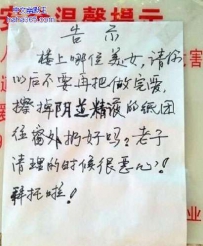 安 温馨提示
告示
楼上哪位美女,请你
以后不要再把做完爱,
擦掉阴道精液的纸团
往窗外扔好吗?老子
清理的时候很恶心!
拜托啦!
害
业